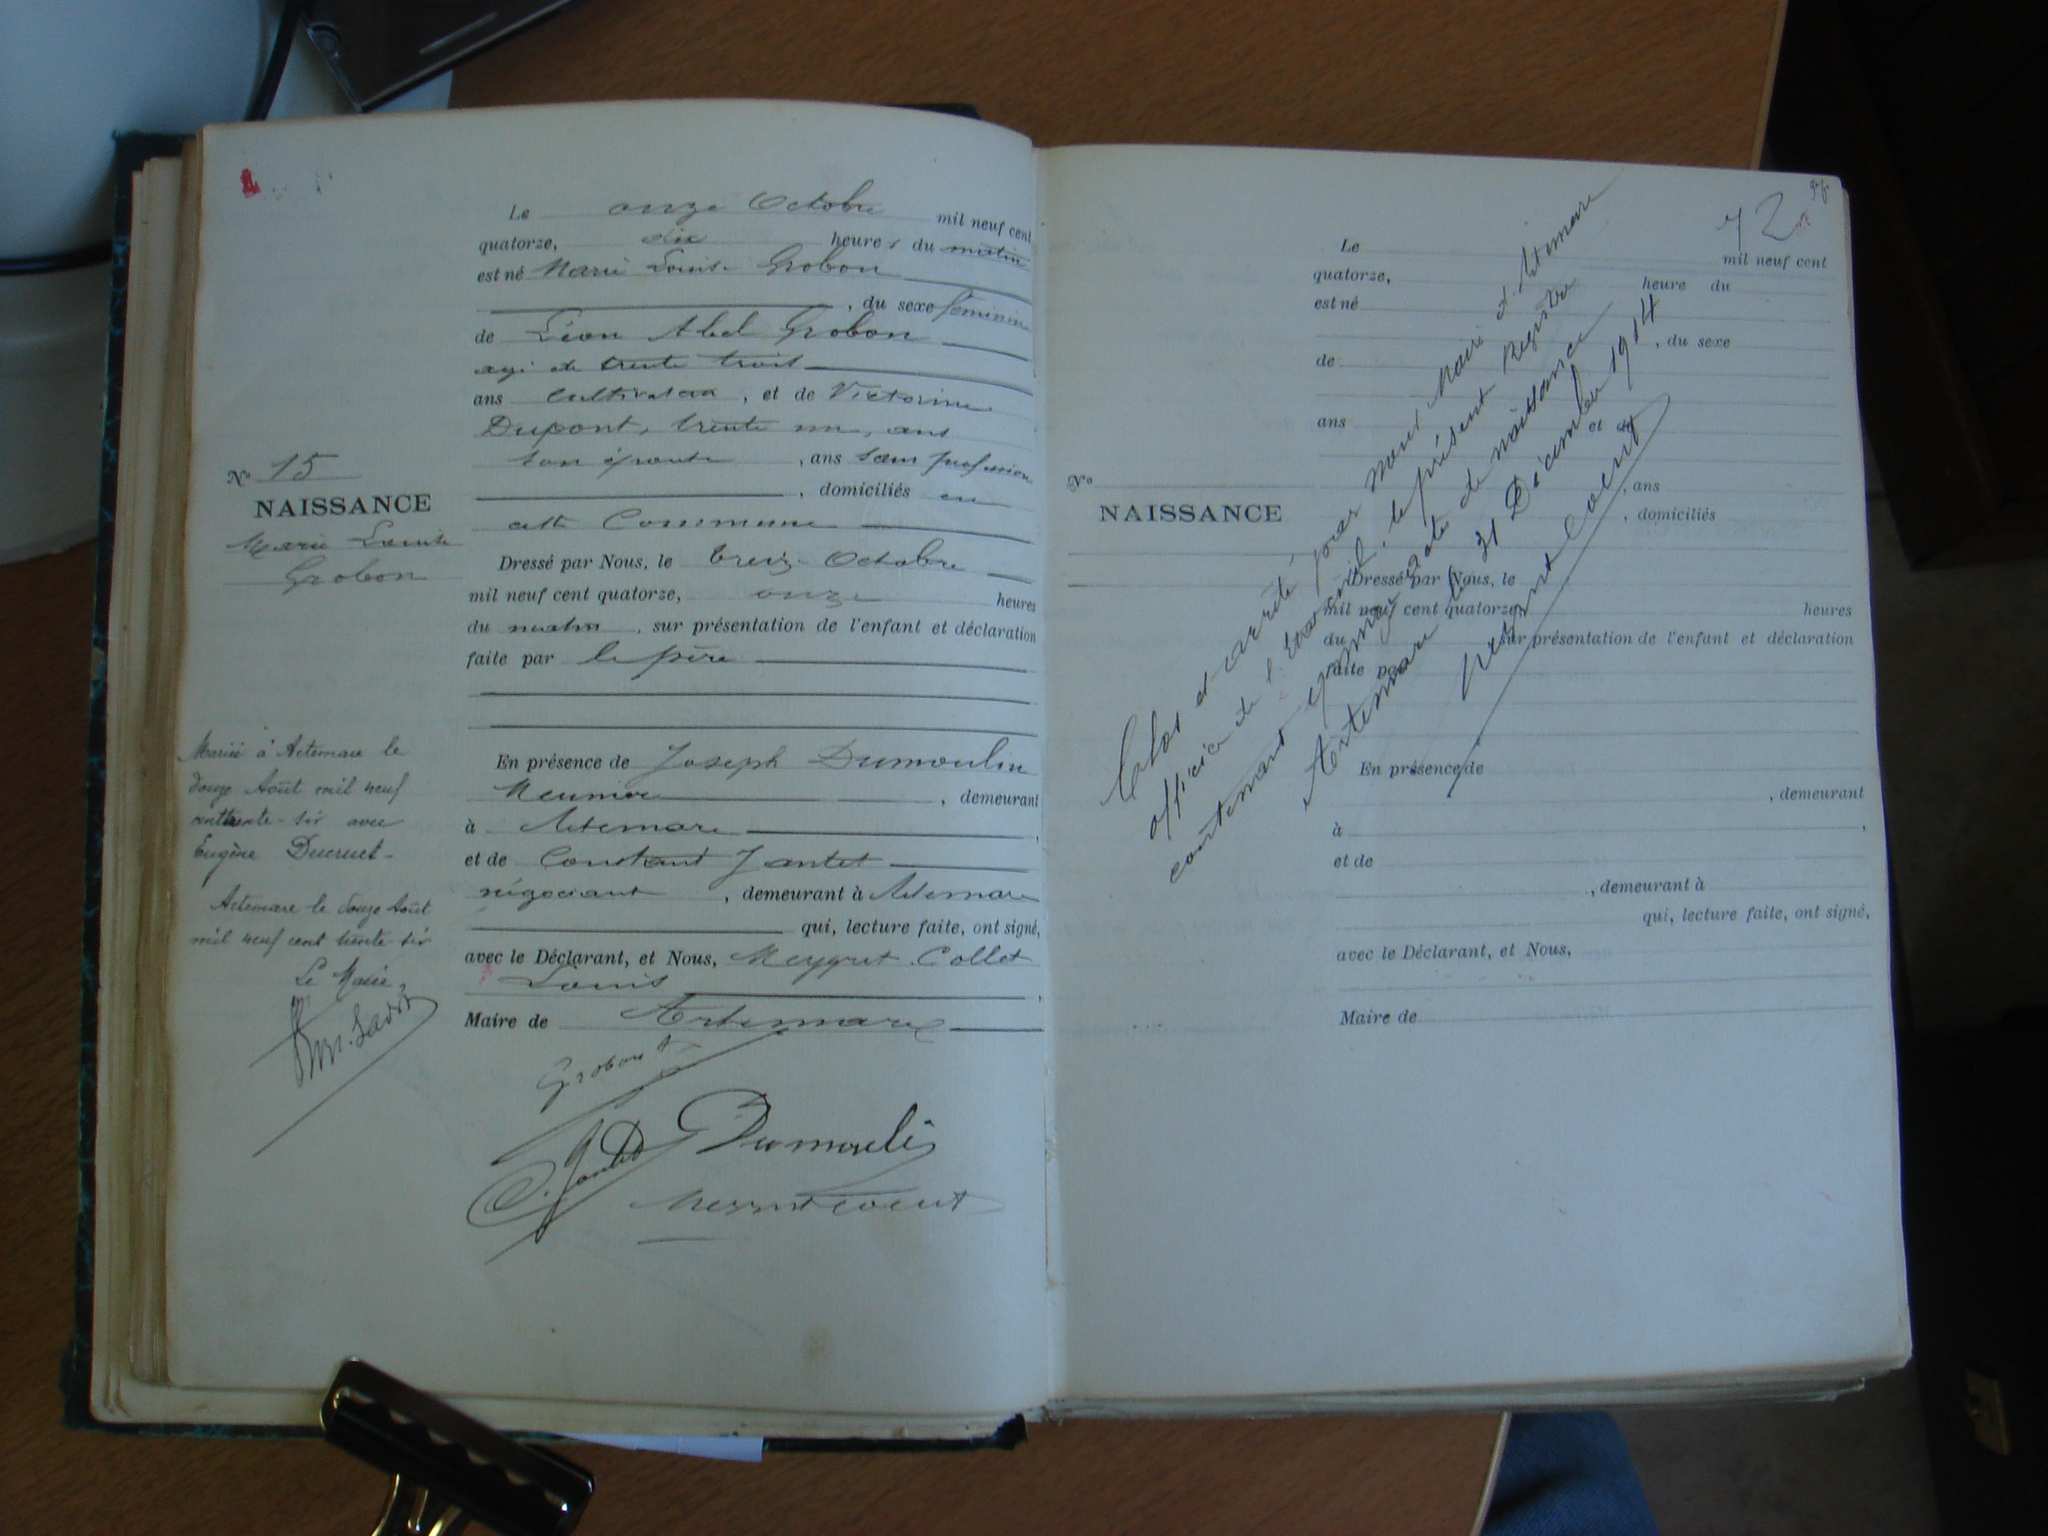 Le onze Octobre mil neuf cent
quatorze, dix heures du matin
est né Marie Louise Grobon
, du sexe féminin
de Léon Abel Grobon
agé de trente trois
ans cultivateur, et de Victorine
Dupont, trente un, ans
son épouse, ans sans profession
, domiciliés en
cette Commune
Nº 15
NAISSANCE
Marie Louise
Grobon
Dressé par Nous, le treize Octobre
mil neuf cent quatorze, onze heures
du matin, sur présentation de l'enfant et déclaration
faite par le père
En présence de Joseph Dumoulin
Meunier, demeurant
à Artemare,
et de Constant Jantet
négociant, demeurant à Artemare
qui, lecture faite, ont signé,
avec le Déclarant, et Nous, Meygret Collet
Louis,
Maire de Artemare
Mariée à Artemare le
douze Août mil neuf
cent trente-six avec
Eugène Ducruet-
Artemare le douze Août
mil neuf cent trente-six
Le Maire,
Grobon
Dumoulin
C. Jantet
72
Le mil neuf cent
quatorze, heure du
est né
, du sexe
de
ans et de
, ans
, domiciliés
Nº
NAISSANCE
Dressé par Nous, le
mil neuf cent quatorze, heures
du sur présentation de l'enfant et déclaration
faite par
En présence de
, demeurant
à ,
et de
, demeurant à
qui, lecture faite, ont signé,
avec le Déclarant, et Nous,
Maire de
Clos et arrêté par nous Maire d'Artemare
officier de l'Etat civil, le présent Registre
contenant quinze actes de naissance
Artemare le 31 Décembre 1914